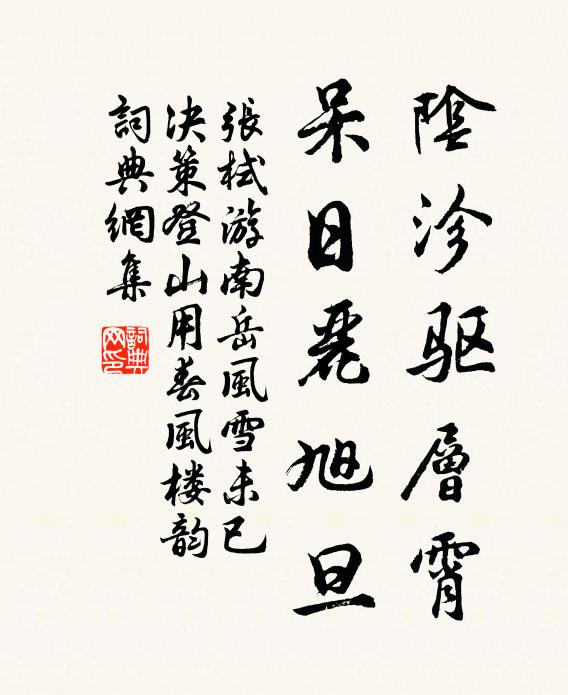 陰沴驱層霄
呆日麗旭旦
張栻游南岳風雪未已
决策登山用春風楼韵
詞典網集
詞典网印